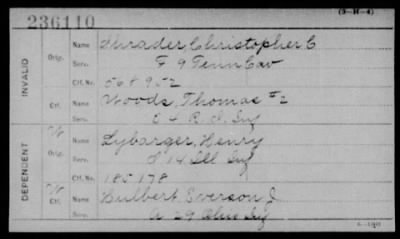 (3-H-4)
236110
INVALID
Orig. Name Shrader, Christopher C
Serv. F 9 Tenn Cav
Ctf. No. 568952
Ctf. Name Woods, Thomas #2
Serv. E 4 R. I. Inf
DEPENDENT
W Orig. Name Lybarger, Henry
Serv. 14 Ill Inf
Ctf. No. 185178
W Ctf. Name Hulbert, Everson J.
Serv. A 29 Ohio Inf